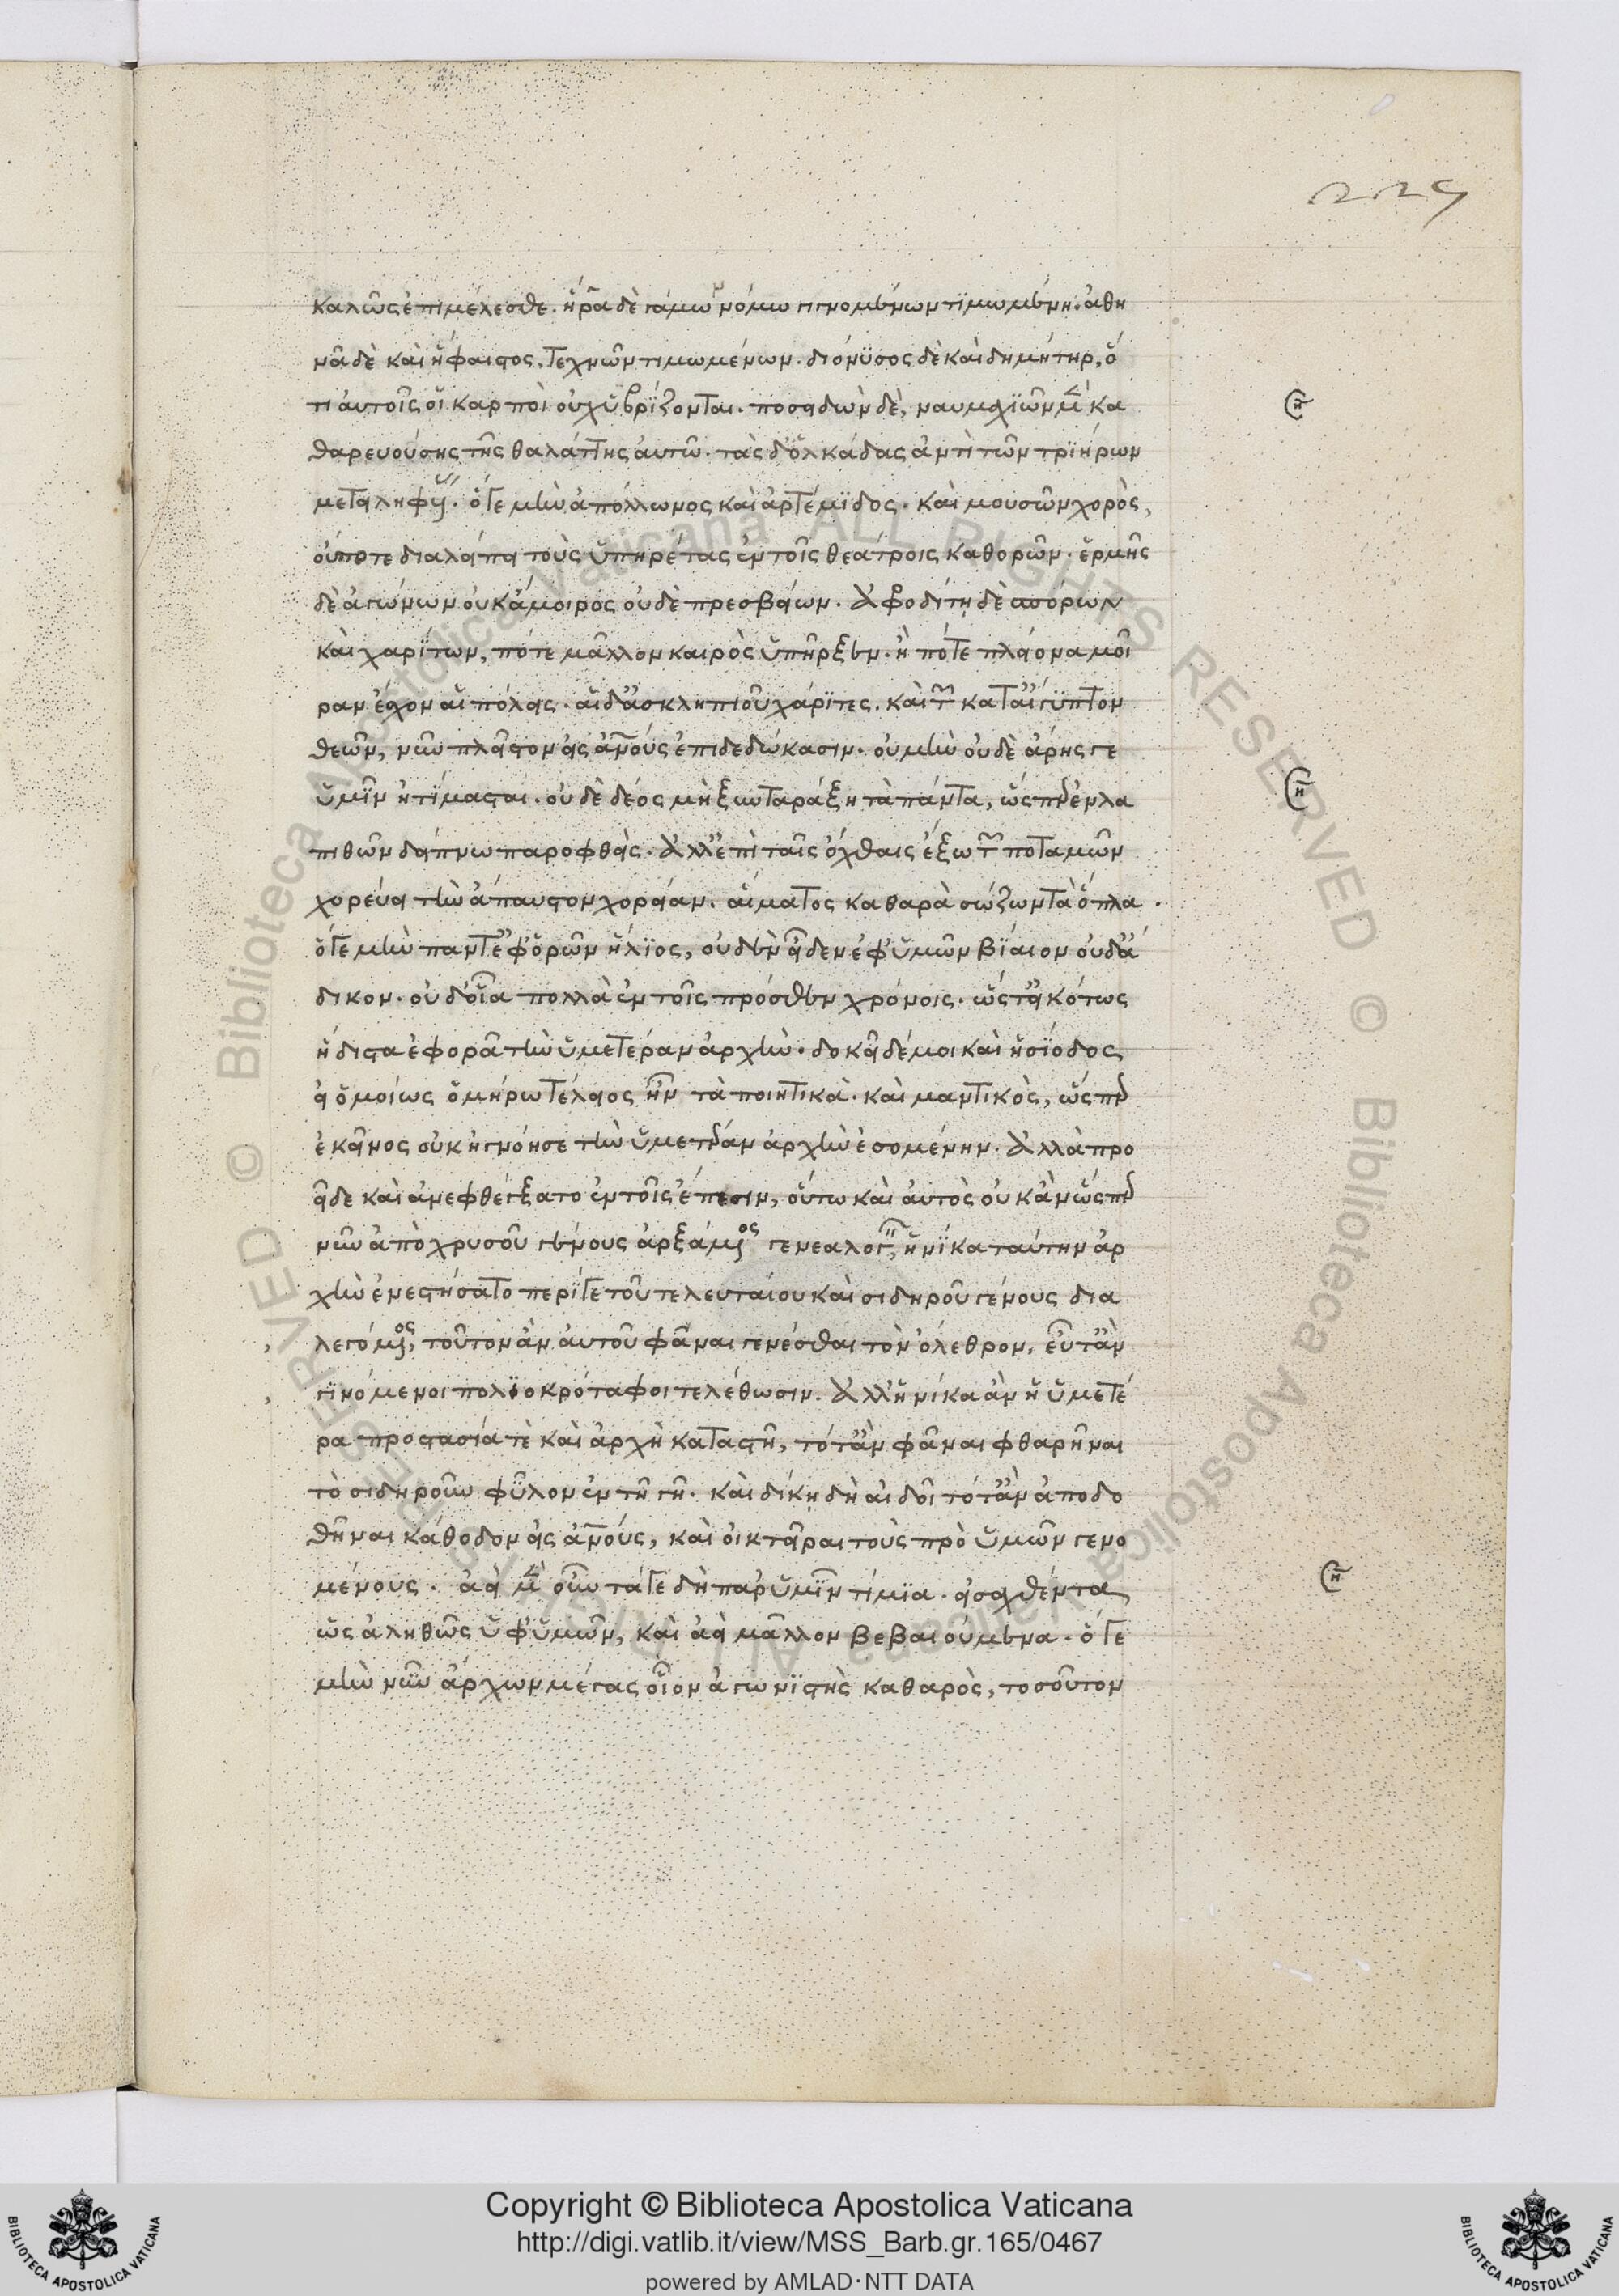 229
καλῶς ἐπιμέλεσθε. ἥρα δὲ γάμων νόμω γιγνομένων τϊμωμένη. ἀθη
νᾶ δὲ καὶ ἥφαιστος, τεχνῶν τιμωμένων. διόνϋσος δὲ καὶ δημήτηρ, ὅ
τι αὐτοῖς οἱ καρποὶ οὐχ ὑβρίζονται. ποσειδῶν δὲ, ναυμαχϊῶν μὲν κα
θαρευούσης τῆς θαλάττης αὐτῶ. τὰς δ' ὁλκάδας ἀντὶ τῶν τριήρων
μεταληφὼς. ὅ γε μὴν ἀπόλλωνος καὶ ἀρτέμϊδος. καὶ μουσῶν χορὸς,
οὔποτε διαλείπει τοὺς ὑπηρέτας ἐν τοῖς θεάτροις καθορῶν. ἑρμῆς
δὲ ἀγώνων οὐκ ἄμοιρος οὐδὲ πρεσβειῶν. Ἀφροδίτη δὲ σπόρων
καὶ χαρίτων, πότε μᾶλλον καιρὸς ὑπῆρξεν. ἢ πότε πλείονα μοῖ
ραν ἔχον αἱ πόλεις. αἱ δ' ἀσκληπιοῦ χάρϊτες. καὶ τῶν κατ' αἴγυπτον
θεῶν, νῦν πλεῖστον εἰς ἀνθρώπους ἐπιδεδώκασιν. οὐ μὴν οὐδὲ ἄρης γε
ὑμῖν ἠτίμασται. οὐδὲ δέος μὴ ξυνταράξη τὰ πάντα, ὥσπερ ἐν λα
πιθῶν δείπνω παροφθεὶς. Ἀλλ' ἐπὶ ταῖς ὄχθαις ἔξω τῶν ποταμῶν
χορεύει τὴν ἄπαυστον χορείαν. αἵματος καθαρὰ σώζων τὰ ὅπλα.
ὅ γε μὴν πάντ' ἐφορῶν ἥλϊος, οὐδὲν εἶδεν ἐφ' ὑμῶν βίαιον οὐδ' ἄ
δικον. οὐδ' οἷα πολλὰ ἐν τοῖς πρόσθεν χρόνοις. ὥστ' εἰκότως
ἥδιστα ἐφορᾶ τὴν ὑμετέραν ἀρχὴν. δοκεῖ δέ μοι καὶ ἡσίοδος
εἰ ὁμοίως ὁμήρω τέλειος ἦν τὰ ποιητικὰ. καὶ μαντικὸς, ὥσπερ
ἐκεῖνος οὐκ ἠγνόησε τὴν ὑμετέραν ἀρχὴν ἐσομένην. Ἀλλὰ προ
εῖδε καὶ ἀνεφθέγξατο ἐν τοῖς ἔπεσιν, οὕτω καὶ αὐτὸς οὐκ ἂν ὥσπερ
νῦν ἀπὸ χρυσοῦ γένους ἀρξάμενος γενεαλογεῖν, ἡνίκα ταύτην ἀρ
χὴν ἐνεστήσατο περί γε τοῦ τελευταίου καὶ σιδηροῦ γένους δια
λεγόμενος, τοῦτον ἂν αὐτοῦ φᾶναι γενέσθαι τὸν ὄλεθρον, εὖτ' ἂν
γϊνόμενοι πολϊοκρόταφοι τελέθωσιν. Ἀλλ' ἡνίκα ἂν ἡ ὑμετέ
ρα προστασία τὲ καὶ ἀρχὴ καταστῆ, τότ' ἂν φᾶναι φθαρῆναι
τὸ σιδηροῦν φῦλον ἐν τῆ γῆ. καὶ δίκη δὴ αἰδοῖ τότ' ἂν ἀποδο
θῆναι κάθοδον εἰς ἀνθρώπους, καὶ οἰκτεῖραι τοὺς πρὸ ὑμῶν γενο
μένους. ἀεὶ μὲν οὖν τά γε δὴ παρ' ὑμῖν τίμϊα. εἰσαχθέντα
ὡς ἀληθῶς ὑφ' ὑμῶν, καὶ ἀεὶ μᾶλλον βεβαιούμενα. ὅ γε
μὴν νῦν ἄρχων μέγας οἷον ἀγωνϊστὴς καθαρὸς, τοσοῦτον
Copyright © Biblioteca Apostolica Vaticana
http://digi.vatlib.it/view/MSS_Barb.gr.165/0467
powered by AMLAD·NTT DATA
BIBLIOTECA APOSTOLICA VATICANA
BIBLIOTECA APOSTOLICA VATICANA